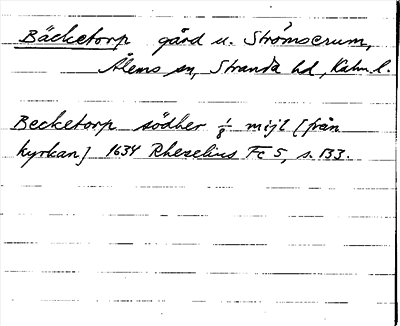 Bäcketorp gård u. Strömserum,
Ålems sn, Stranda hd, Kalm. l.
Becketorp södher 1/8 mijl [från
kyrkan] 1634 Rhezelius Fc 5, s. 133.